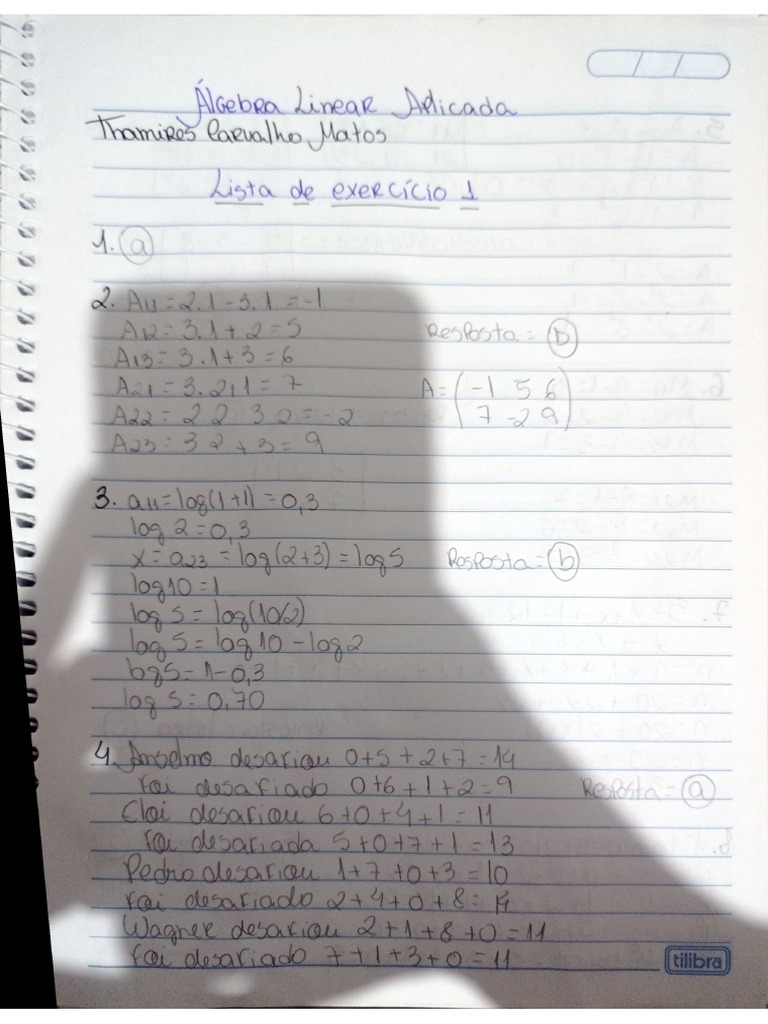 Álgebra Linear Aplicada
Thamires Carvalho Matos
Lista de exercício 1
1. a
2. A11 = 2.1 - 3.1 = -1
A12 = 3.1 + 2 = 5
Resposta = b
A13 = 3.1 + 3 = 6
A21 = 3.2+1 = 7
A = ( -1 5 6
7 -2 9 )
A22 = 2 2 3 2 = -2
A23 = 3 2 + 3 = 9
3. a11 = log(1+1) = 0,3
log 2 = 0,3
x = a23 = log(2+3) = log 5 Resposta = b
log 10 = 1
log 5 = log(10/2)
log 5 = log 10 - log 2
log 5 = 1 - 0,3
log 5 = 0,70
4. Anselmo desafiou 0+5+2+7 = 14
Foi desafiado 0+6+1+2 = 9 Resposta = a
Cloi desafiou 6+0+4+1 = 11
Foi desafiada 5+0+7+1 = 13
Pedro desafiou 1+7+0+3 = 10
Foi desafiado 2+4+0+8 =
Wagner desafiou 2+1+8+0 = 11
Foi desafiado 7+1+3+0 = 11
tilibra